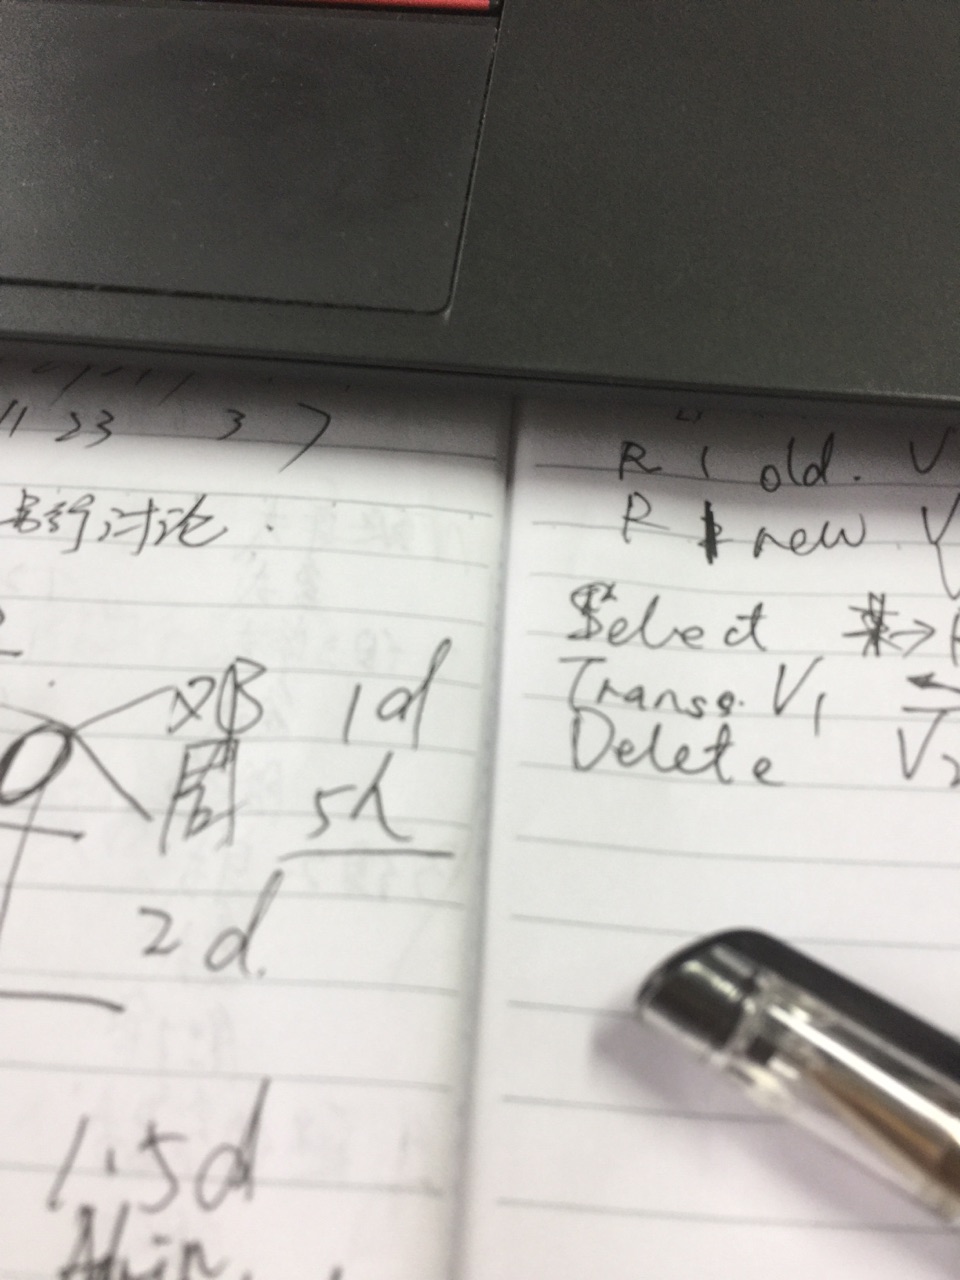 11 23 3 7
讨论.
1d
周 5h
2d.
1.5d
Admin
R 1 old. V
R new V
Select
Trans. V1
Delete V2